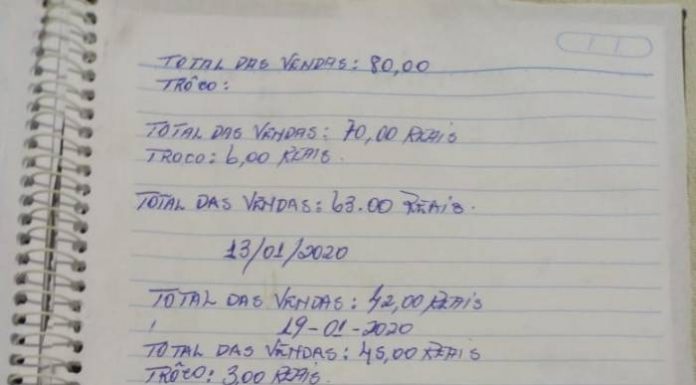 TOTAL DAS VENDAS: 80,00
TRÔCO:
TOTAL DAS VENDAS: 70,00 REAIS
TROCO: 6,00 REAIS.
TOTAL DAS VENDAS: 63.00 REAIS.
13/01/2020
TOTAL DAS VENDAS: 42,00 REAIS
19-01-2020
TOTAL DAS VENDAS: 45,00 REAIS
TRÔCO: 3,00 REAIS.